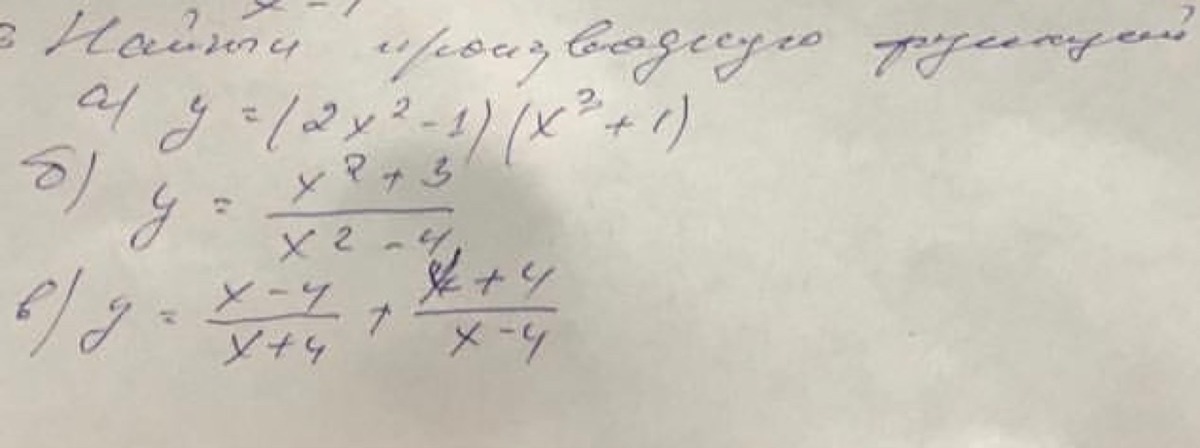 Найти производную функций
а) y = (2x² - 1)(x³ + 1)
б) y = \frac{x² + 3}{x² - 4}
в) y = \frac{x - 4}{x + 4} + \frac{x + 4}{x - 4}